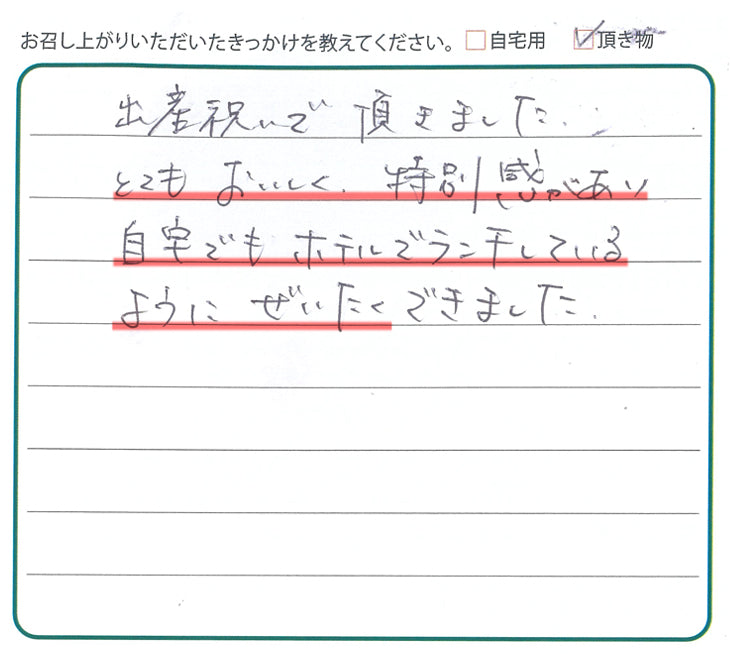 お召し上がりいただいたきっかけを教えてください。 □自宅用 ☑頂き物
出産祝いで 頂きました.
とても おいしく. 特別感があり
自宅でも ホテルでランチしている
ように ぜいたくできました.